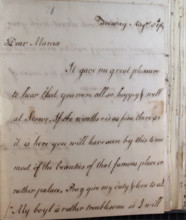 Dear Mama
It gave me great pleasure
to hear that you were all so happy & well
at Stowe, if the weather is as fine there as
it is here you will have seen by this time
most of the beauties of that famous place or
rather palace. Pray give my duty & love to all
My boy is rather troublesome & I will